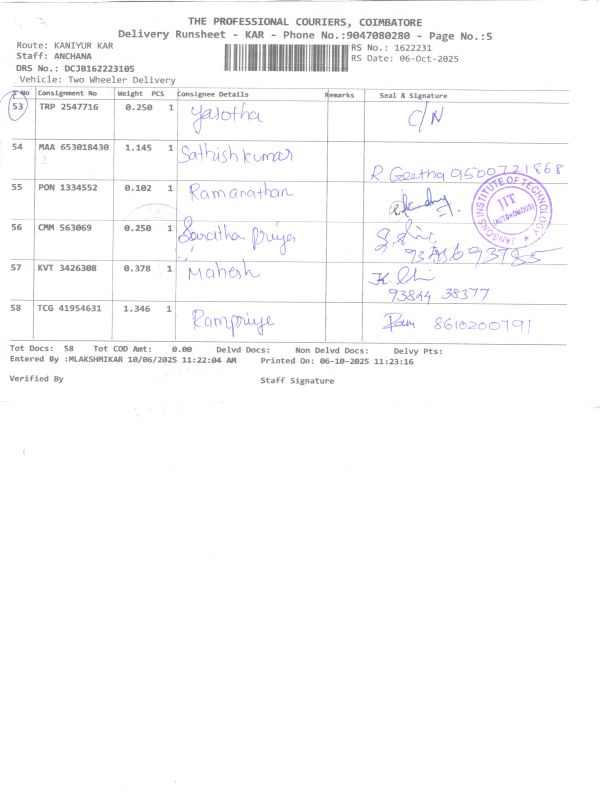 THE PROFESSIONAL COURIERS, COIMBATORE
Delivery Runsheet - KAR - Phone No.:9047080280 - Page No.:5
Route: KANIYUR KAR
Staff: ANCHANA
DRS No.: DCJB162223105
Vehicle: Two Wheeler Delivery
RS No.: 1622231
RS Date: 06-Oct-2025
S No Consignment No Weight PCS Consignee Details Remarks Seal & Signature
53 TRP 2547716 0.250 1 Yasotha C/N
54 MAA 653018430 1.145 1 Sathish kumar R. Geetha 9500721868
55 PON 1334552 0.102 1 Ramanathan
JANSONS INSTITUTE OF TECHNOLOGY
JIT
(AUTONOMOUS)
56 CMM 563069 0.250 1 Saratha priya
57 KVT 3426308 0.378 1 Mahesh
93844 38377
58 TCG 41954631 1.346 1 Rampriye Ram 8610200791
Tot Docs: 58 Tot COD Amt: 0.00 Delvd Docs: Non Delvd Docs: Delvy Pts:
Entered By :MLAKSHMIKAR 10/06/2025 11:22:04 AM Printed On: 06-10-2025 11:23:16
Verified By Staff Signature